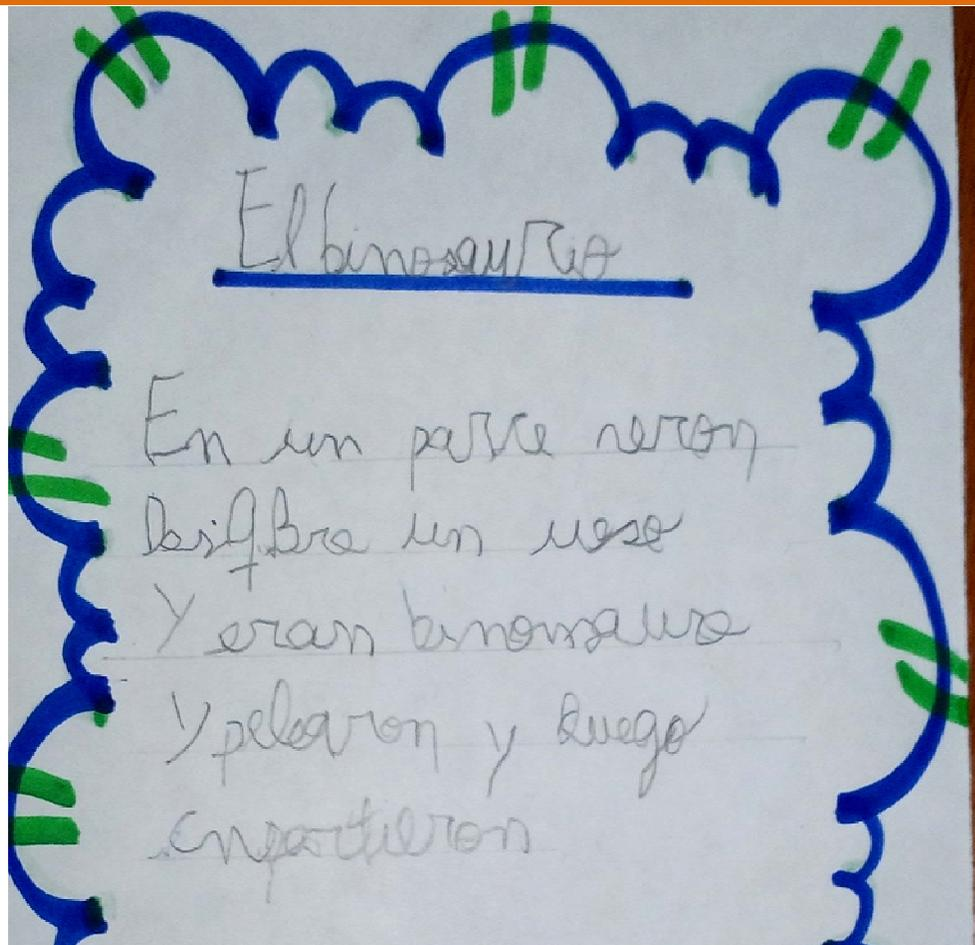 El binosaurio
En un parce neron
Desiqbra un ueso
Y eran binomsauro
Y pelearon y luego
cnpartieron